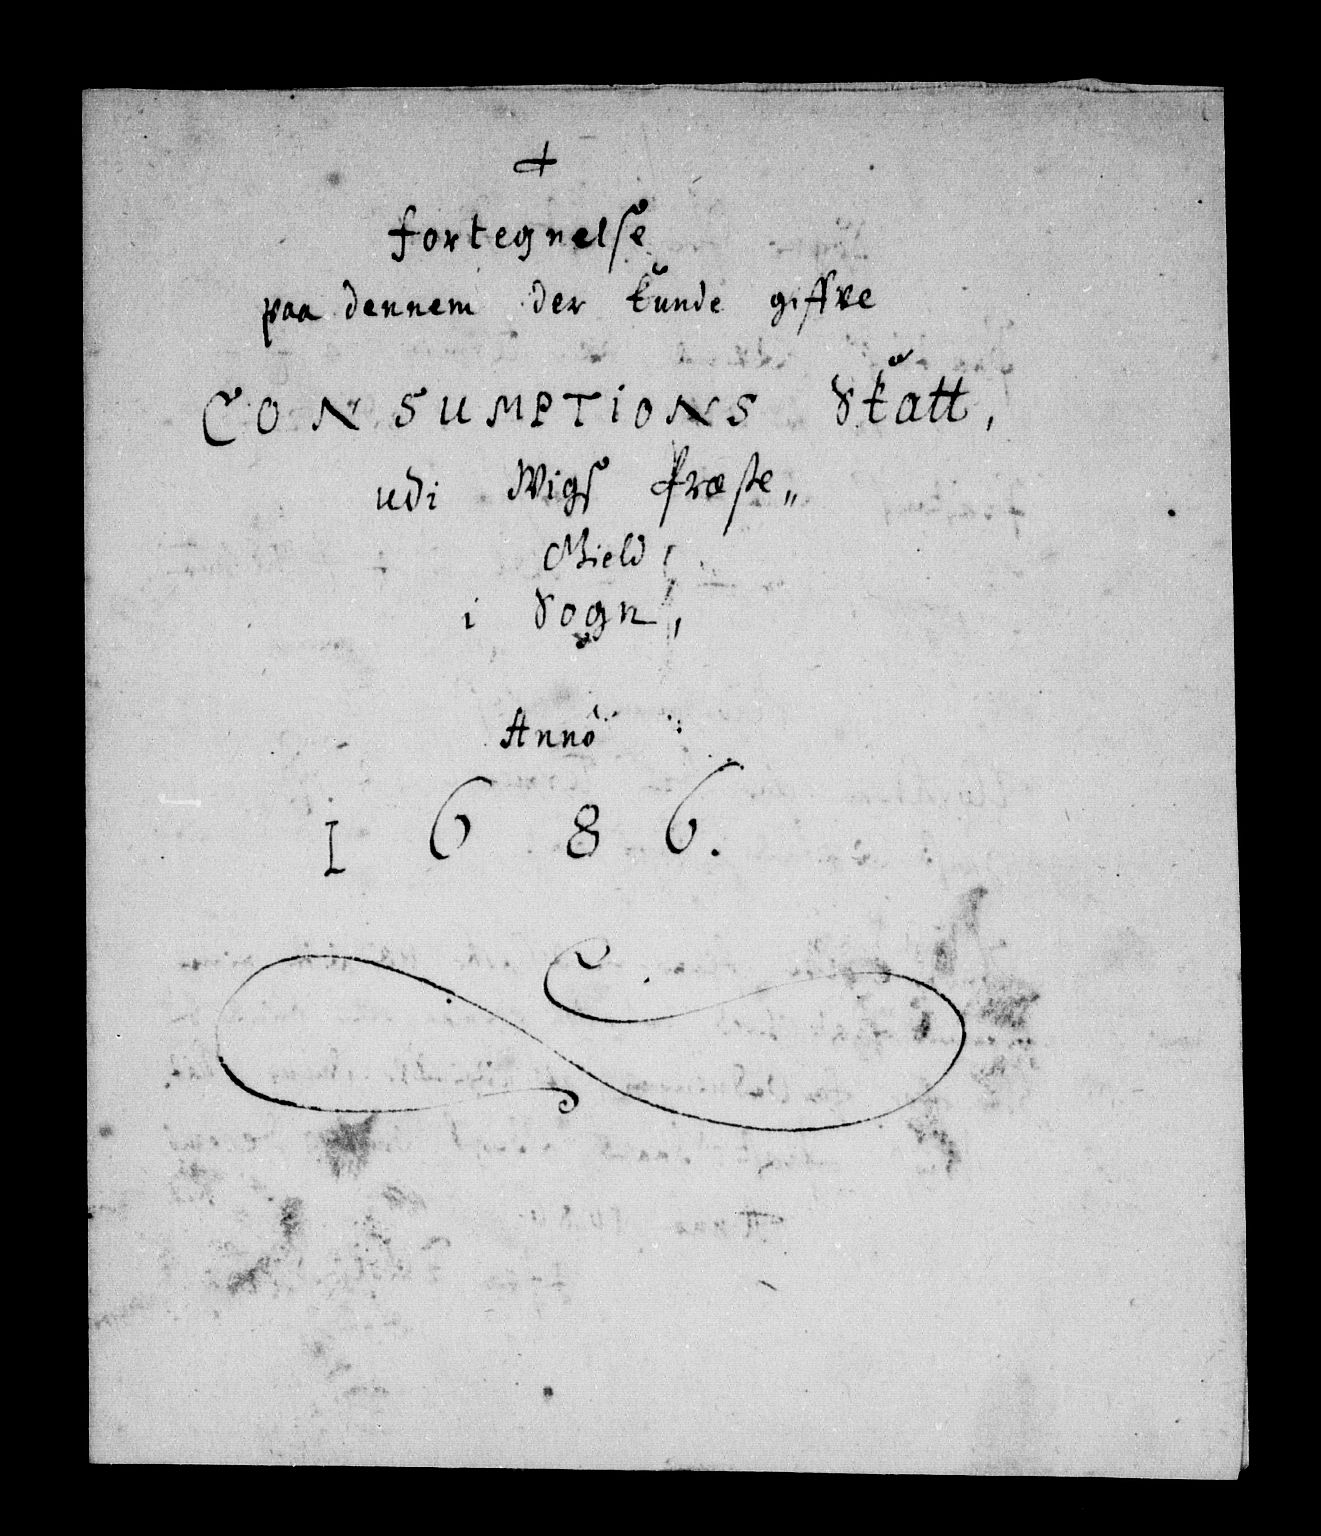 fortegnelse
paa dennem der kunde giffve
CONSUMPTIONS Skatt,
udi Wigs Præste„
Gield,
i Sogn,
Anno
1686.